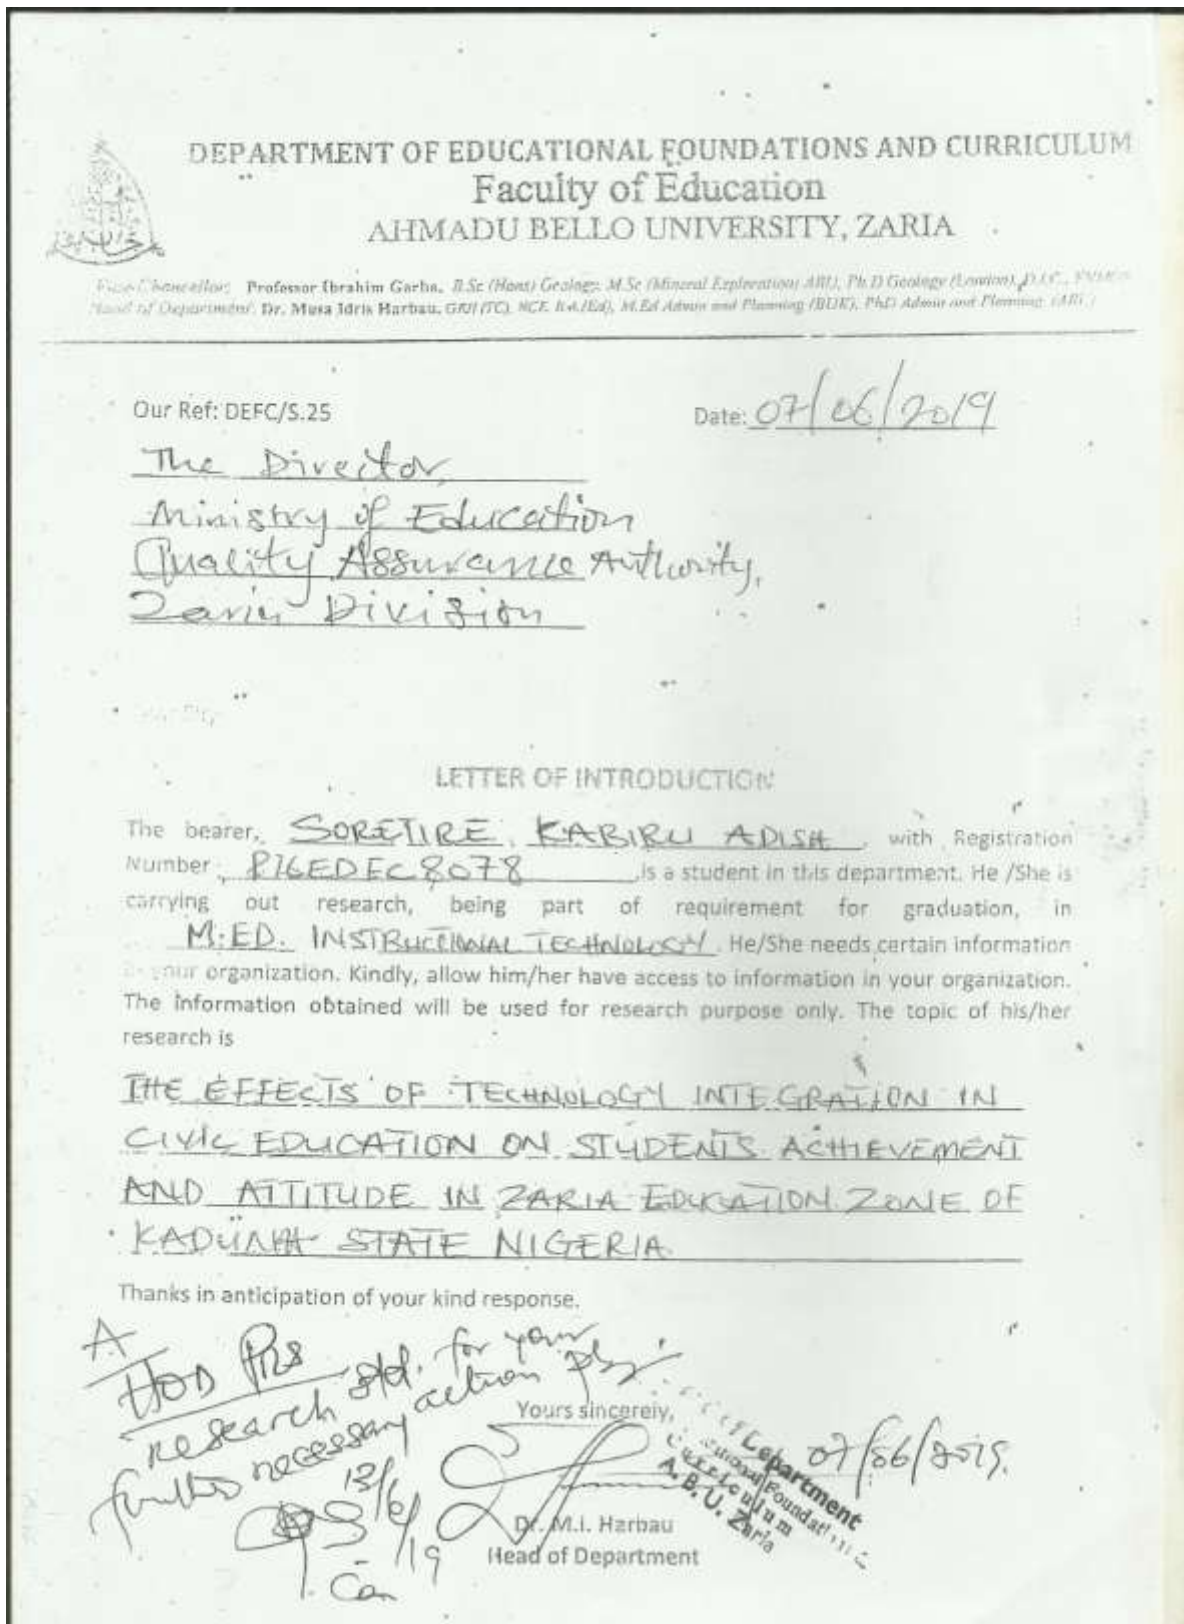 DEPARTMENT OF EDUCATIONAL FOUNDATIONS AND CURRICULUM
Faculty of Education
AHMADU BELLO UNIVERSITY, ZARIA
Vice-Chancellor: Professor Ibrahim Garba, B.Sc (Hons) Geology, M.Sc (Mineral Exploration) ABU, Ph.D Geology (London), D.I.C.,
Head of Department: Dr. Musa Idris Harbau, GRII (TC), NCE, B.A.(Ed), M.Ed Admin and Planning (BUK), PhD Admin and Planning (ABU)
Our Ref: DEFC/S.25
Date: 07/06/2019
The Director,
Ministry of Education
Quality Assurance Authority,
Zaria Division
Dear Sir,
LETTER OF INTRODUCTION
The bearer, SORETIRE KABIRU ADISH with Registration
Number P16EDEC8078 is a student in this department. He /She is
carrying out research, being part of requirement for graduation, in
M.ED. INSTRUCTIONAL TECHNOLOGY. He/She needs certain information
your organization. Kindly, allow him/her have access to information in your organization.
The information obtained will be used for research purpose only. The topic of his/her
research is
THE EFFECTS OF TECHNOLOGY INTEGRATION IN
CIVIC EDUCATION ON STUDENTS ACHIEVEMENT
AND ATTITUDE IN ZARIA EDUCATION ZONE OF
KADUNA STATE NIGERIA
Thanks in anticipation of your kind response.
A
HOD PRS
research std. for your
further necessary action pls
13/6/19
Yours sincerely,
07/06/2019.
Department
Foundations
Curriculum
A. B. U. Zaria
Dr. M.I. Harbau
Head of Department